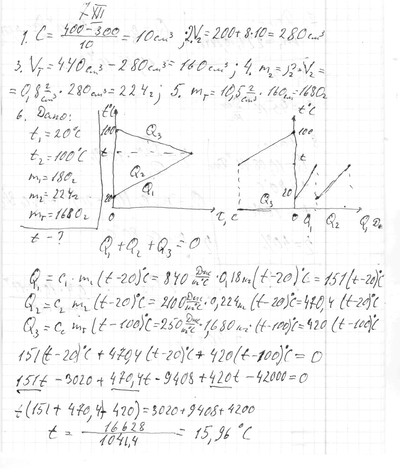 7 XIII
1. C = (400-300)/10 = 10 см³ ; 2. V₂ = 200+8·10 = 280 см³
3. Vт = 440 см³ - 280 см³ = 160 см³ ; 4. m₂ = ρ₂·V₂ =
= 0,8 г/см³ · 280 см³ = 224 г ; 5. mт = 10,5 г/см³ · 160 см³ = 1680 г
6. Дано:
t₁ = 20°С
t₂ = 100°С
m₁ = 180 г
m₂ = 224 г
mт = 1680 г
t - ?
t°С
100
t
20
0
Q₃
Q₂
Q₁
τ, с
t°С
100
t
20
0
Q₃
Q₁
Q₂
Q, Дж
Q₁ + Q₂ + Q₃ = 0
Q₁ = c₁ m₁ (t-20)°С = 840 Дж/кг°С · 0,18 кг (t-20)°С = 151 (t-20)°С
Q₂ = c₂ m₂ (t-20)°С = 2100 Дж/кг°С · 0,224 кг (t-20)°С = 470,4 (t-20)°С
Q₃ = cс mт (t-100)°С = 250 Дж/кг°С · 1,680 кг · (t-100)°С = 420 (t-100)°С
151 (t-20)°С + 470,4 (t-20)°С + 420 (t-100)°С = 0
151t - 3020 + 470,4t - 9408 + 420t - 42000 = 0
t (151 + 470,4 + 420) = 3020 + 9408 + 4200
t = 16628/1041,4 = 15,96 °С